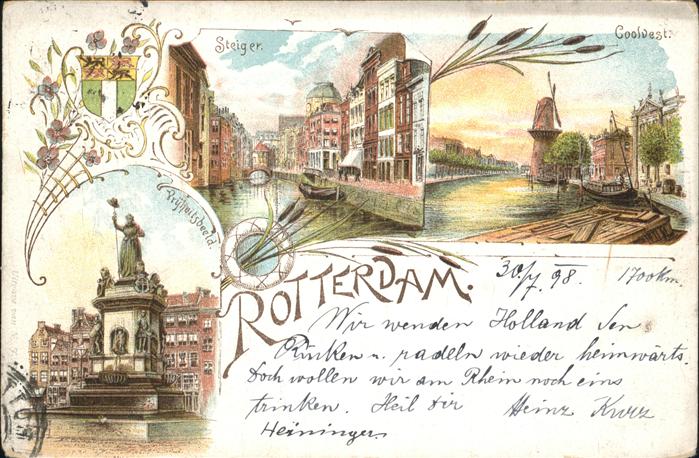 Steiger.
Coolvest.
Vrijheitsbeeld.
ROTTERDAM.
30./7. 98. 1700 km.
Wir wenden Holland den
Rücken u. radeln wieder heimwärts.
Doch wollen wir am Rhein noch eins
trinken. Heil dir Heinz Kurz
Heininger.